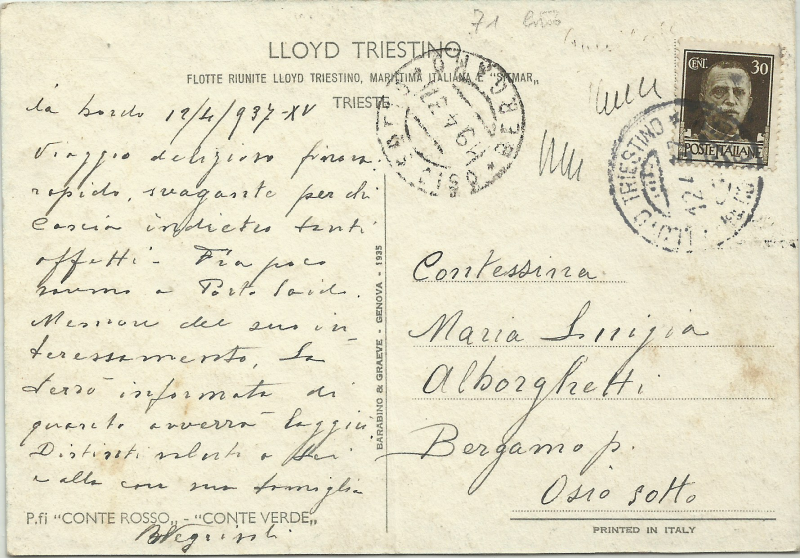 71
LLOYD TRIESTINO
FLOTTE RIUNITE LLOYD TRIESTINO, MARITTIMA ITALIANA E "SITMAR"
TRIESTE
CENT. 30
POSTE ITALIANE
da bordo 12/4/937-XV
Viaggio delizioso finora
rapido, svagante per chi
lascia indietro tanti
affetti - Fra poco
saremo a Porto Said.
Memore del suo in
teressamento, La
terrò informata di
quanto avverrà laggiù
Distinti saluti a Lei
e alla cara sua famiglia
BARABINO & GRAEVE - GENOVA - 1935
Contessina
Maria Luigia
Alborghetti
Bergamo p.
Osio Sotto
P.fi "CONTE ROSSO" - "CONTE VERDE"
PRINTED IN ITALY